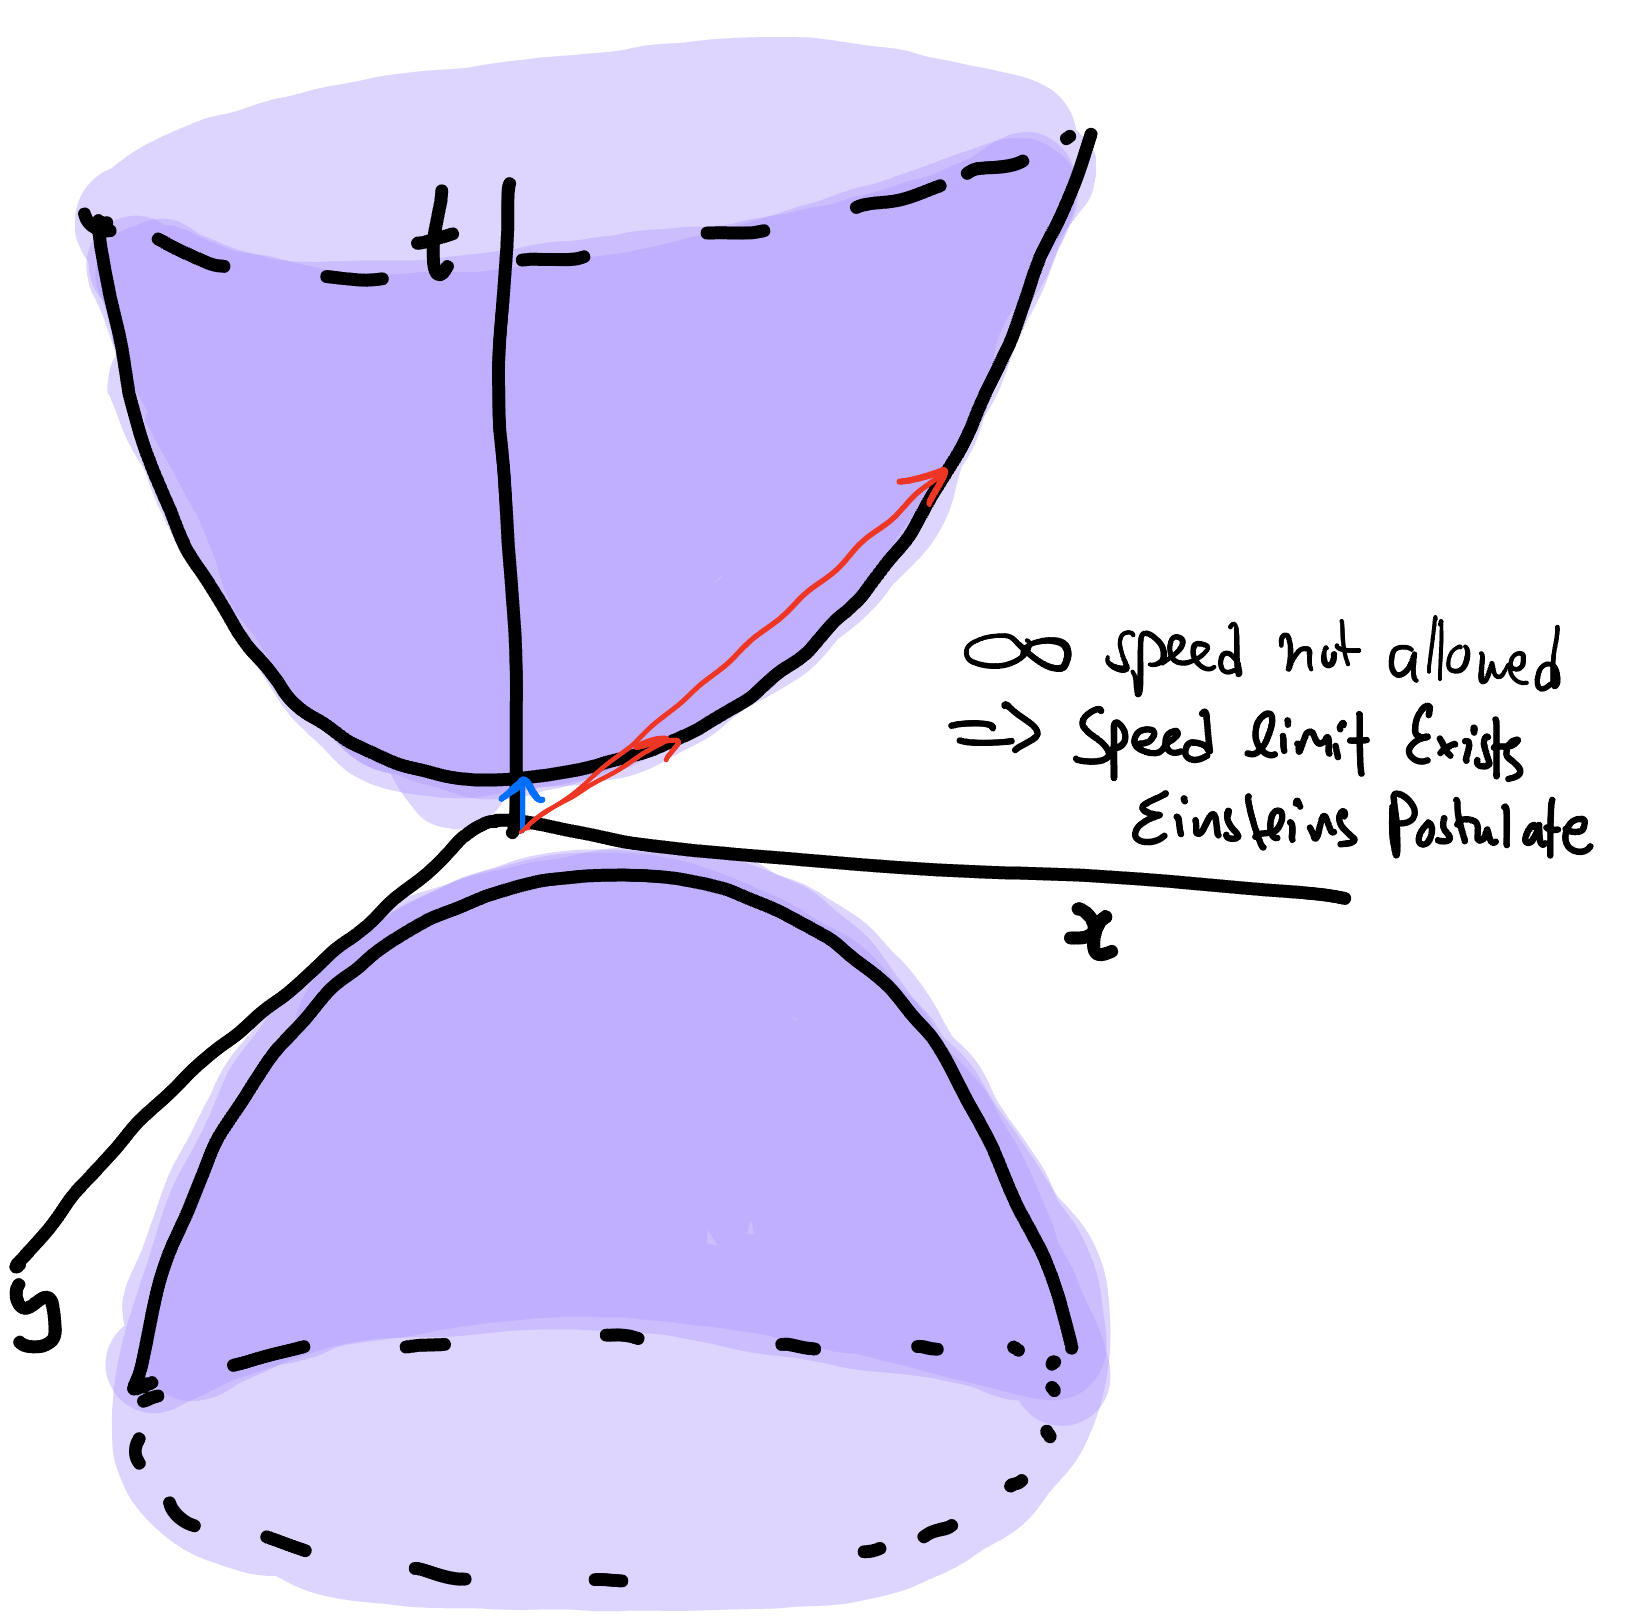 t
∞ speed not allowed
=> Speed limit Exists
Einsteins Postulate
x
y